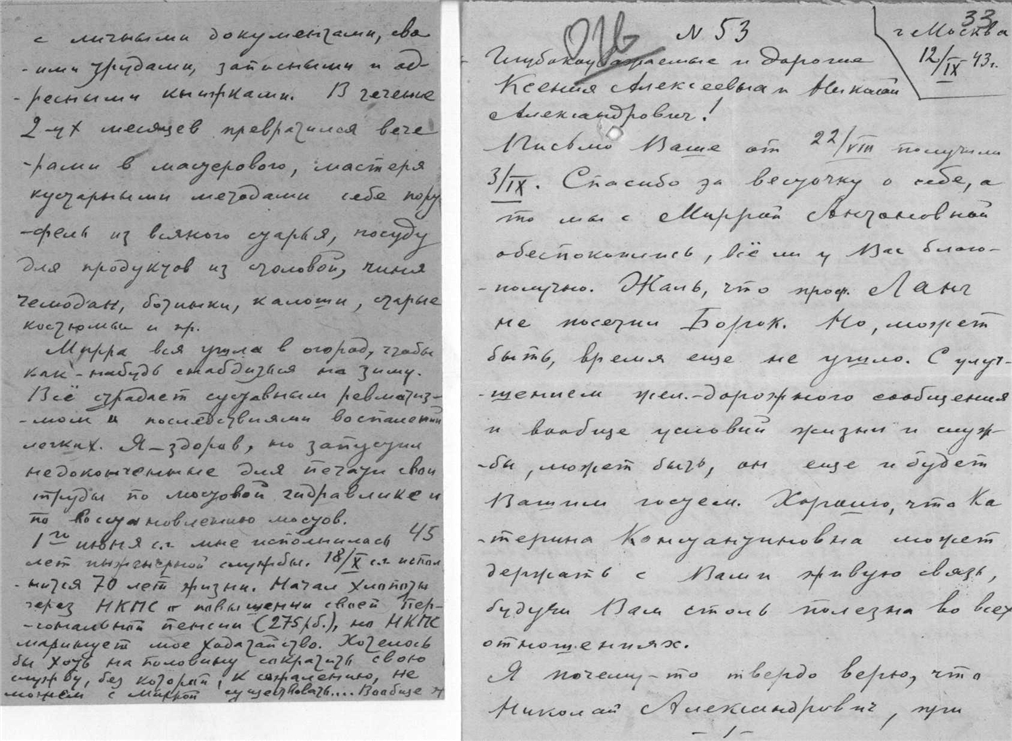 с личными документами, сво-
-ими трудами, записными и ад-
-ресными книжками. В течение
2-ух месяцев превратился вече-
-рами в мастерового, мастеря
кустарными методами себе порт-
-фель из всякого старья, посуду
для продуктов из столовой, чиня
чемодан, ботинки, калоши, старые
костюмы и пр.
Мирра вся ушла в огород, чтобы
как-нибудь снабдиться на зиму.
Всё страдает суставным ревматиз-
-мом и последствиями воспаления
легких. Я – здоров, но запустил
недоконченные для печати свои
труды по мостовой гидравлике и
по восстановлению мостов.
1го июня с.г. мне исполнилась 45
лет инженерной службы. 18/X с.г. испол-
-нится 70 лет жизни. Начал хлопоты
через НКПС о повышении своей пер-
-сональной пенсии (275 рб.), но НКПС
маринует мое ходатайство. Хотелось
бы хоть на половину сократить свою
службу, без которой, к сожалению, не
можем с Миррой существовать.... Вообще
33
N 53
г Москва
12/IX 43г.
Глубокоуважаемые и дорогие
Ксения Алексеевна и Николай
Александрович!
Письмо Ваше от 22/VIII получили
3/IX. Спасибо за весточку о себе, а
то мы с Миррой Антоновной
обеспокоились, всё ли у Вас благо-
-получно. Жаль, что проф. Ланг
не посетил Борок. Но, может
быть, время еще не ушло. С улуч-
-щением жел.-дорожного сообщения
и вообще условий жизни и служ-
-бы, может быть, он еще и будет
Вашим гостем. Хорошо, что Ка-
-терина Константиновна может
держать с Вами живую связь,
будучи Вам столь полезна во всех
отношениях.
Я почему-то твердо верю, что
Николай Александрович, при
- 1 -